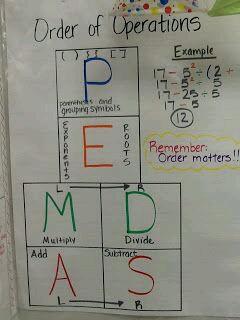 Order of Operations
( ) { } [ ]
P
parenthesis and
grouping symbols
Exponents
E
ROOTS
L R
M D
Multiply Divide
Add Subtract
A S
L R
Example
17 - 5² ÷ (2 +
17 - 5² ÷ 5
17 - 25 ÷ 5
17 - 5
12
Remember:
Order matters!!